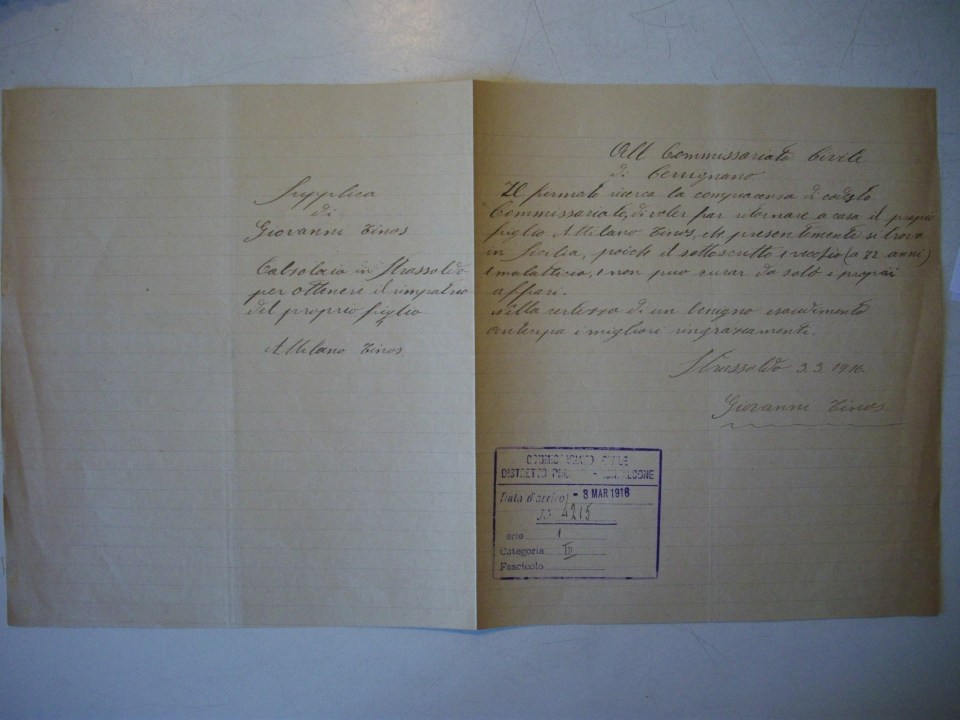 Supplica
di
Giovanni Tinos
Calsolaio in Strassoldo
per ottenere il rimpatrio
del proprio figlio
Attilano Tinos
All Commissariato Civile
di Cervignano
Il firmato ricerca la compiacenza di codesto
Commissariato, di voler far ritornare a casa il proprio
figlio Attilano Tinos, che presentemente si trova
in Sicilia, poichè il sottoscritto è vecchio (a 72 anni)
e malatticio, e non può curar da solo i proprii
affari.
Nella certezza di un benigno esaudimento
antecipa i migliori ringraziamenti.
Strassoldo 3.3.1916
Giovanni Tinos
COMMISSARIATO CIVILE
DISTRETTO - MONFALCONE
Data d'arrivo - 3 MAR 1916
No 4215
erie 1
Categoria III
Fascicolo